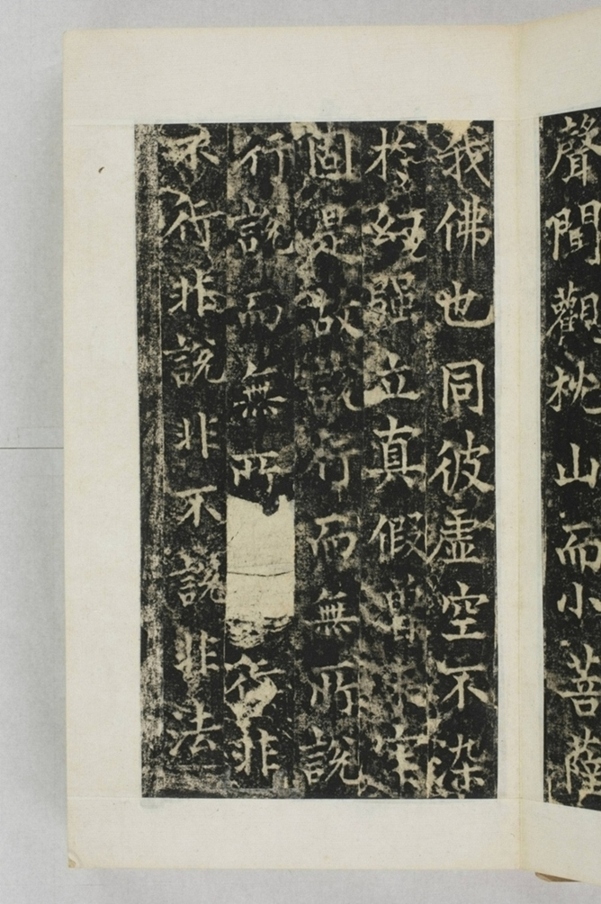 聲聞觀枕山而小菩薩
我佛也同彼虛空不染
於幻强立真假曾未牢
固是故說行而無所說
行說而無所行非
不行非說非不說非法